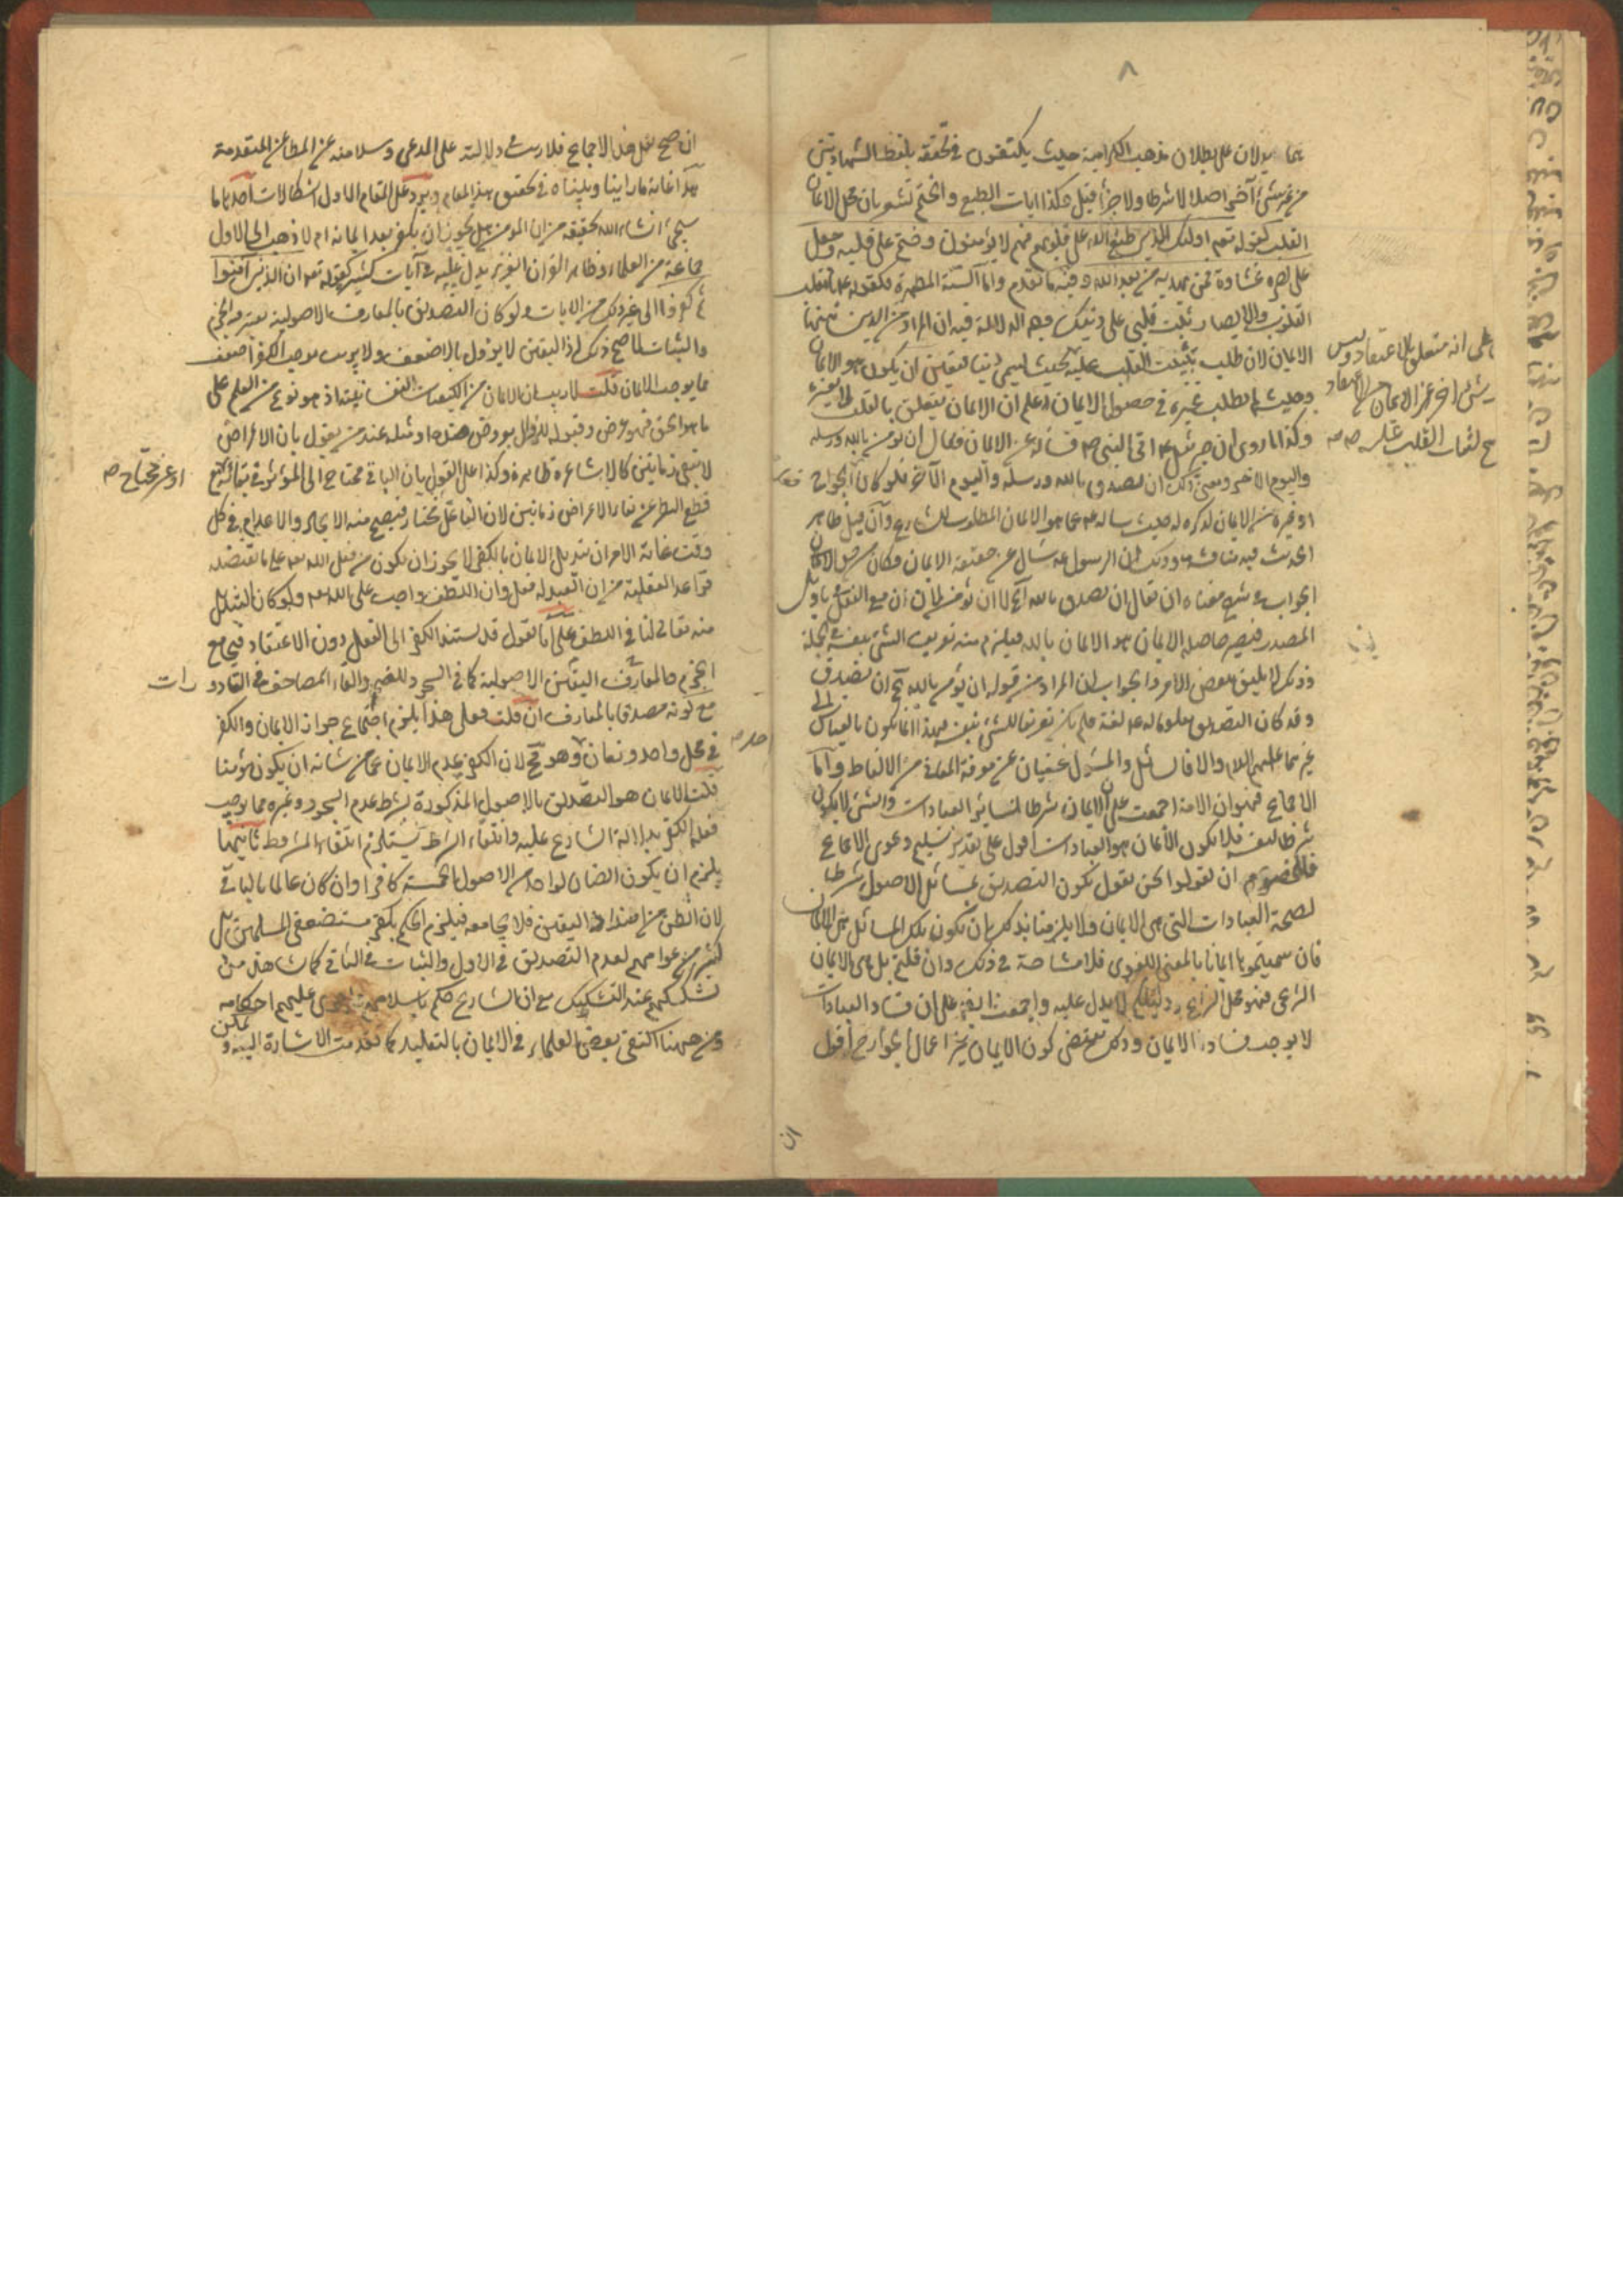 ٨
بما يدلان على بطلان مذهب الكرامية حيث يكتفون في تحققه بلفظ الشهادتين
من غير شئ آخر اصلا لا شرطا ولا جزأ قيل هكذا ايات الطبع والختم تشعر بان محل الايمان
القلب كقوله تعم اولئك الذين طبع الله على قلوبهم فهم لا يؤمنون وختم على قلبه وجعل
على بصره غشاوة فمن يهديه من بعد الله وفيه ما تقدم واما السنة المطهرة فكقوله يا مقلب
القلوب والابصار ثبت قلبي على دينك وجه الدلالة فيه ان المراد من الدين هنا
الايمان لان طلب تثبيت القلب عليه يدل
على انه متعلق بالاعتقاد وليس
شئ اخر غير الايمان من الاعتقاد
يصلح لثبات القلب عليه صح
بحيث يسمى دينا فتعين ان يكون هو الايمان
وحيث لم يطلب غيره في حصول الايمان علم ان الايمان يتعلق بالقلب لا بغيره
وكذا ما روى ان جبرئيل ع اتى النبي ص فسأله عن الايمان فقال ان تؤمن بالله ورسله
واليوم الاخر ومعنى ذلك ان تصدق بالله ورسله واليوم الآخر فلو كان الجوارح
او غيره من الايمان لذكره له حيث سأله عما هو الايمان المطلوب للشارع وان قيل ظاهر
الحديث فيه مناقشة وذلك ان الرسول ع سئل عن حقيقة الايمان فكان من حق
الجواب في شرح معناه ان يقال ان تصدق بالله الخ لا ان تؤمن لان ان مع الفعل بتأويل
المصدر فيصير حاصله الايمان هو الايمان بالله فيلزم منه تعريف الشئ بنفسه في الجملة
وذلك لا يليق بنفس الامر والجواب ان المراد من قوله ان تؤمن بالله الخ ان تصدق
وقد كان التصديق معلوما له ع لغة فلم يكن تعريفا للشئ بنفسه فهذا انما يكون بالقياس الى
غيرهما عليهم السلام والا فالسائل والمسئول غنيان عن معرفة المعاني من الالفاظ واما
الاجماع فهو ان الامة اجمعت على ان الايمان شرط لسائر العبادات والشئ لا يكون
شرطا لنفسه فلا يكون الايمان هو العبادات اقول على تقدير تسليم دعوى الاجماع
فللخصوم ان يقولوا نحن نقول بكون التصديق بمسائل الاصول شرطا
لصحة العبادات التي هي الايمان ولا يلزمنا بذلك ان تكون تلك المسائل هي الايمان
فان سميتموها ايمانا بالمعنى اللغوى فلا مشاحة في ذلك وان قلتم بل هي الايمان
الشرعى فهو محل النزاع ودليلكم لا يدل عليه واجمعت ايضا على ان فساد العبادات
لا يوجب فساد الايمان وذلك يقتضى كون الايمان غير اعمال الجوارح اقول
ان
ان صح نقل هذا الاجماع فلا ريب في دلالته على المدعى وسلامته عن المطاعن المتقدمة
هذا غاية ما رأينا وبيناه في تحقيق هذا المقام ويرد على المقام الاول اشكالات احدها ما
سيجئ انشاء الله تحقيقه من ان المؤمن هل يجوز ان يكفر بعد ايمانه ام لا ذهب الى الاول
جماعة من العلماء وظاهر القرآن العزيز يدل عليه في آيات كثيرة كقوله تعم ان الذين آمنوا
ثم كفروا الى غير ذلك من الايات ولو كان التصديق بالمعارف الاصولية يعتبر فيه الجزم
والثبات لما صح ذلك اذ اليقين لا يزول بالاضعف ولا ريب ان موجب الكفر اضعف
مما يوجب الايمان قلت لا ريب ان الايمان من الكيفيات النفسانية اذ هو نوع من العلم على
ما هو الحق فهو عرض وقبوله للزوال بعروض ضده او مثله عند من يقول بان الاعراض
لا تبقى زمانين كالاشاعرة ظاهر وكذا على القول بان الباقى محتاج الى المؤثر في بقائه
او غير محتاج صح
مع قطع النظر عن بقاء الاعراض زمانين لان الفاعل مختار فيصح منه الايجاد والاعدام في كل
وقت غاية الامر ان تبديل الايمان بالكفر لا يجوز ان يكون من فعل الله تعم على ما تقتضيه
قواعد العقلية من ان العبد له فعل وان اللطف واجب على الله تعم ولو كان التبديل
منه تعالى لنافى اللطف على انا نقول قد يستند الكفر الى الفعل دون الاعتقاد فيجامع
الجزم بالمعارف اليقينية الاصولية كما في السجود للصنم والقاء المصاحف في القاذورات
مع كونه مصدقا بالمعارف ان قلت فعلى هذا يلزم اجتماع جواز الايمان والكفر
في محل واحد وزمان واحد صح وهو مح لان الكفر عدم الايمان عما من شأنه ان يكون مؤمنا
قلت الايمان هو التصديق بالاصول المذكورة بشرط عدم السجود وغيره مما يوجب
فعله الكفر بدلالة الشارع عليه وانتفاء الشرط يستلزم انتفاء المشروط ثانيها
يلزم ان يكون الظان لواحد من الاصول الخمسة كافرا وان كان عالما بالباقى
لان الظن من اضداد اليقين فلا يجامعه فيلزم الحكم بكفر مستضعفي المسلمين بل
كثير من عوامهم لعدم التصديق في الاول والثبات في الثانى كما نشاهد من
تشككهم عند التشكيك مع ان الشارع حكم باسلامهم واجرى عليهم احكامه
ومن هيهنا اكتفى بعض العلماء في الايمان بالتقليد كما تقدمت الاشارة اليه ويمكن